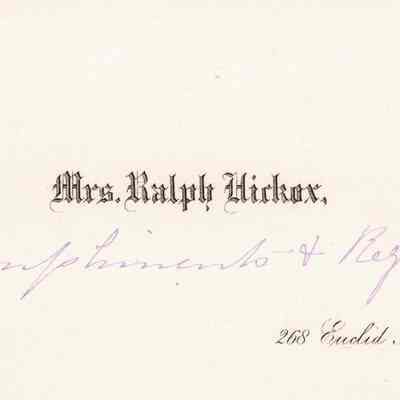 Mrs. Ralph Hickox,
mpliments & Reg
268 Euclid